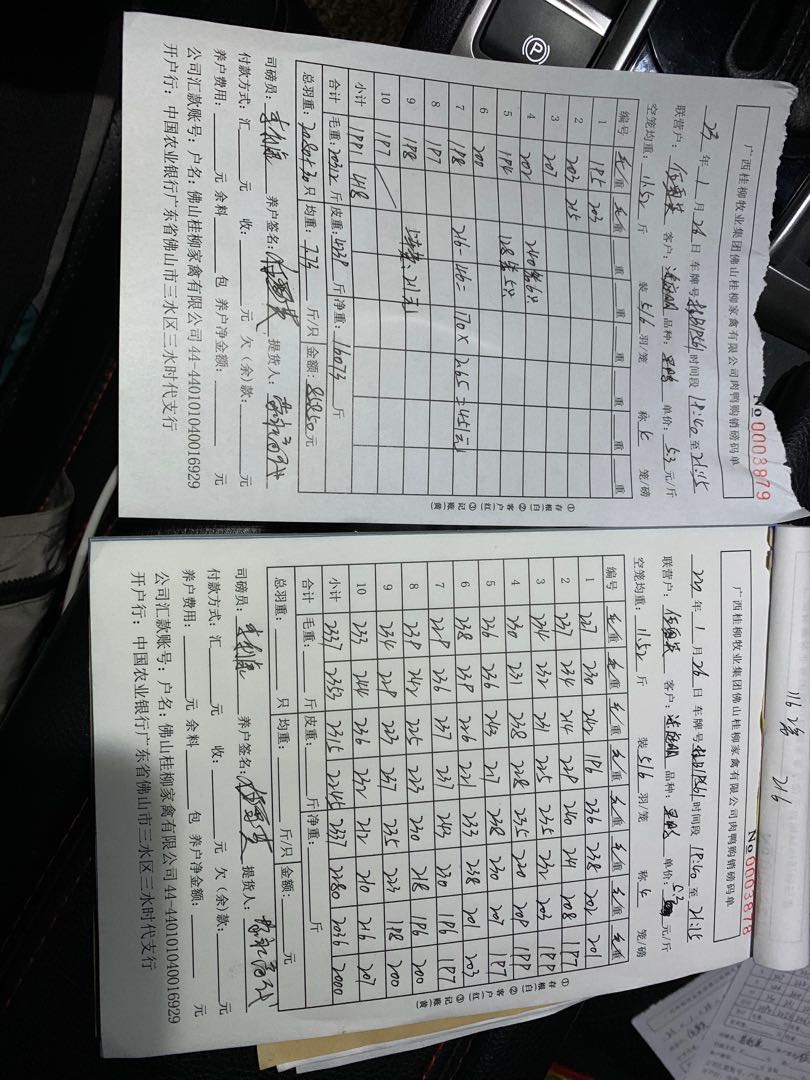 广西桂柳牧业集团佛山桂柳家禽有限公司肉鸭购销磅码单
№ 0003879
23 年 1 月 26 日 车牌号 时间段 18:40 至 21:15
联营户: 客户: 品种: 单价: 5.3 元/斤
空笼均重: 11.52 斤 装 5/6 羽/笼 称 笼/磅
编号 毛重 毛重 重 重 重 重 重 重
1 195 203
2 203 215
3 207
4 202 240
5 194
6 200
7 198 216-146= 170× 2.65=451元
8 197
9 198
10 197
小计 1991 418
合计 毛重: 20312 斤 皮重: 4239 斤 净重: 16073 斤
总羽重: 只 均重: 7.73 斤/只 金额: 85850 元
司磅员: 养户签名: 提货人:
付款方式: 汇 元 收: 元 欠(余)款: 元
养户费用: 元 余料 包 养户净金额: 元
公司汇款账号: 户名: 佛山桂柳家禽有限公司 44-440101040016929
开户行: 中国农业银行广东省佛山市三水区三水时代支行
①存根(白) ②客户(红) ③记账(黄)
216
广西桂柳牧业集团佛山桂柳家禽有限公司肉鸭购销磅码单
№ 0003878
23 年 1 月 26 日 车牌号 时间段 18:40 至 21:15
联营户: 客户: 品种: 单价: 5.3 元/斤
空笼均重: 11.52 斤 装 5/6 羽/笼 称 笼/磅
编号 毛重 毛重 毛重 毛重 毛重 毛重 毛重 毛重
1 227 230 242 196 236 238 202 201
2 237 234 214 229 240 241 208 197
3 234 232 231 225 235 232 203 199
4 230 231 238 228 235 220 209 199
5 236 236 242 217 238 230 207 197
6 238 239 226 221 233 238 201 203
7 229 236 237 237 243 230 196 197
8 239 242 225 223 230 218 196 200
9 234 229 223 237 235 223 198 200
10 233 244 236 232 212 210 216 207
小计 2337 2353 2315 2245 2337 2280 2036 2000
合计 毛重: 斤 皮重: 斤 净重: 斤
总羽重: 只 均重: 斤/只 金额: 元
司磅员: 养户签名: 提货人:
付款方式: 汇 元 收: 元 欠(余)款: 元
养户费用: 元 余料 包 养户净金额: 元
公司汇款账号: 户名: 佛山桂柳家禽有限公司 44-440101040016929
开户行: 中国农业银行广东省佛山市三水区三水时代支行
①存根(白) ②客户(红) ③记账(黄)